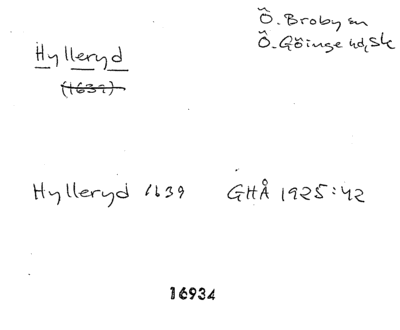 Ö. Broby sn
Ö. Göinge hd, Sk
Hylleryd
(1639)
Hylleryd 1639 GHÅ 1925:42
16934